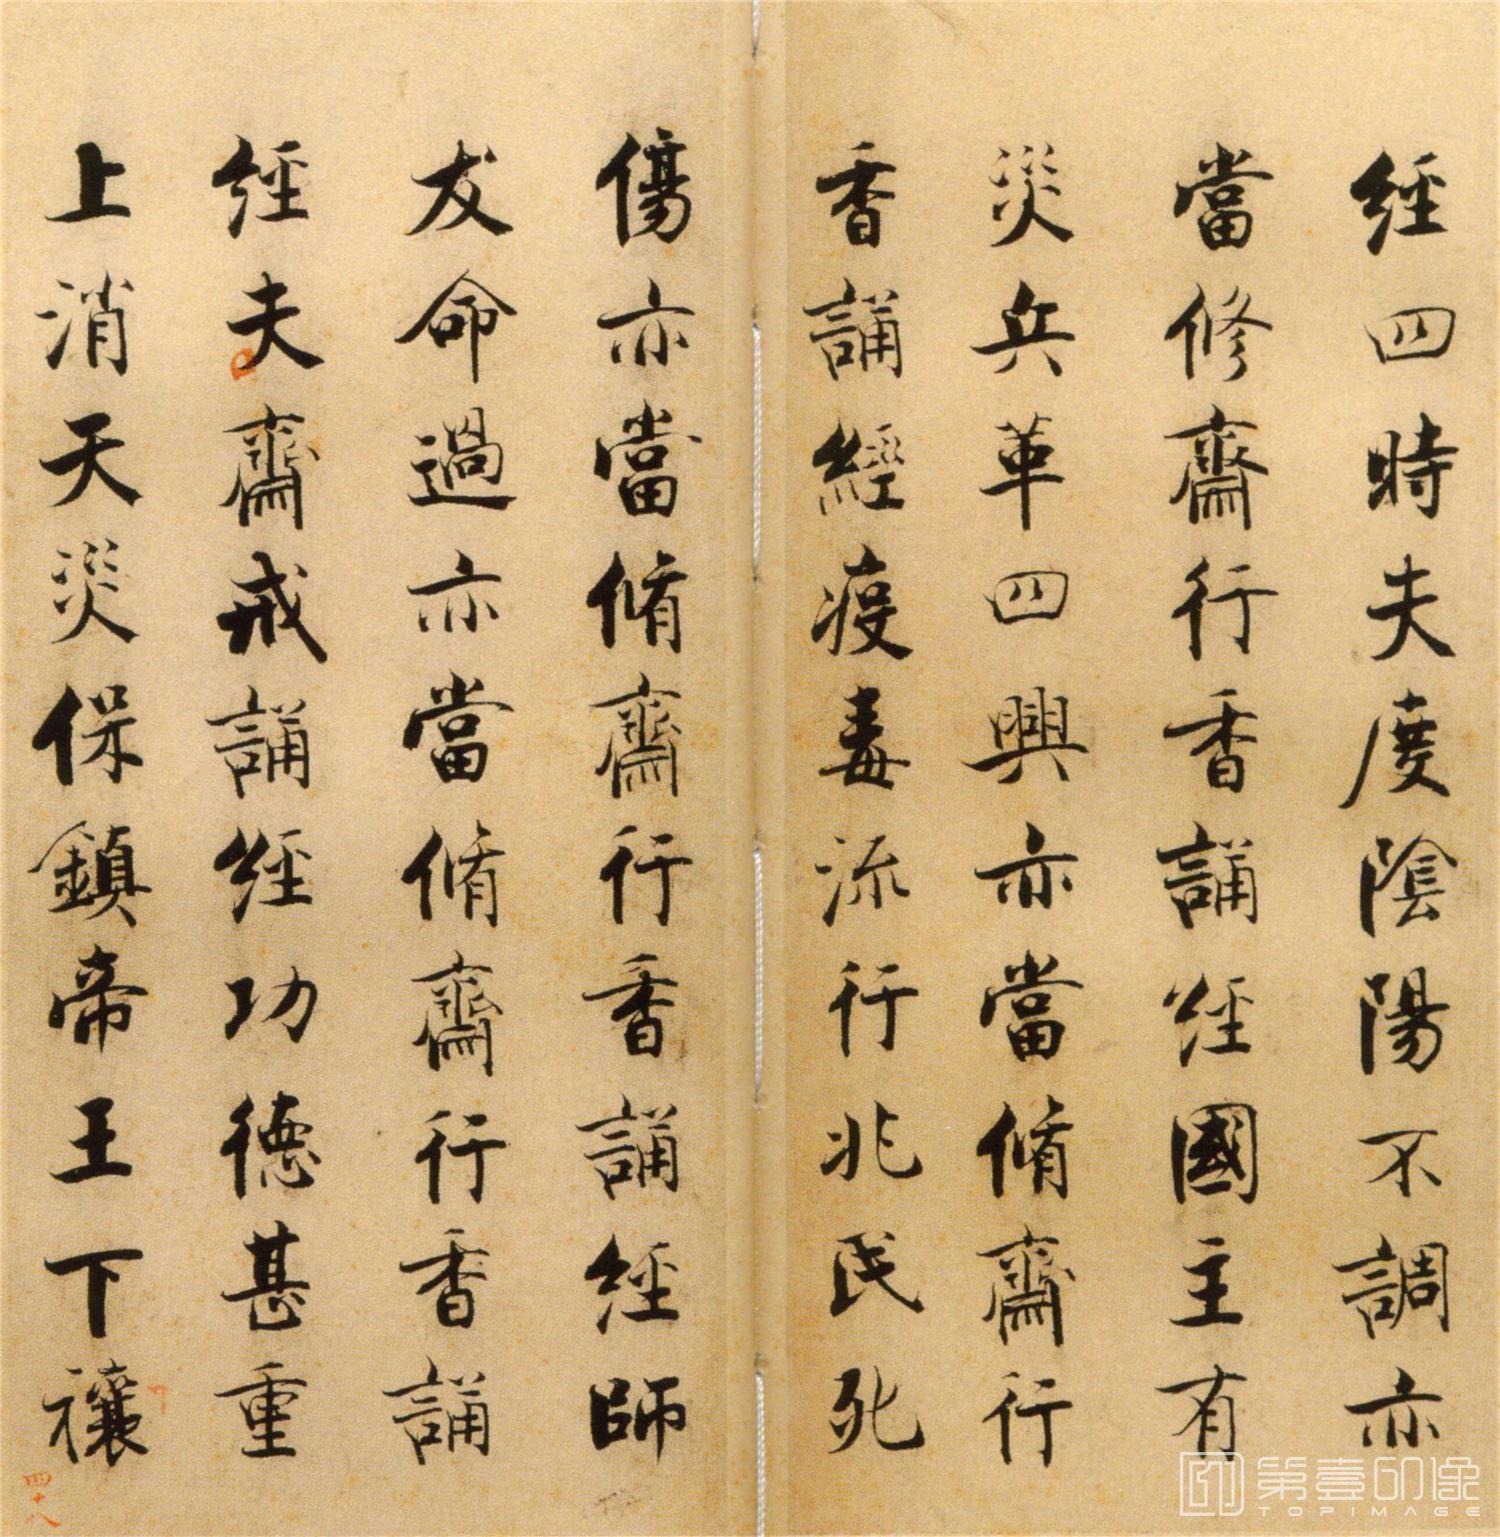 經四時失度陰陽不調亦
當修齋行香誦經國主有
災兵革四興亦當脩齋行
香誦經疫毒流行兆民死
傷亦當脩齋行香誦經師
友命過亦當脩齋行香誦
經夫齋戒誦經功德甚重
上消天災保鎮帝王下禳
四十八
第壹印像
TOPIMAGE